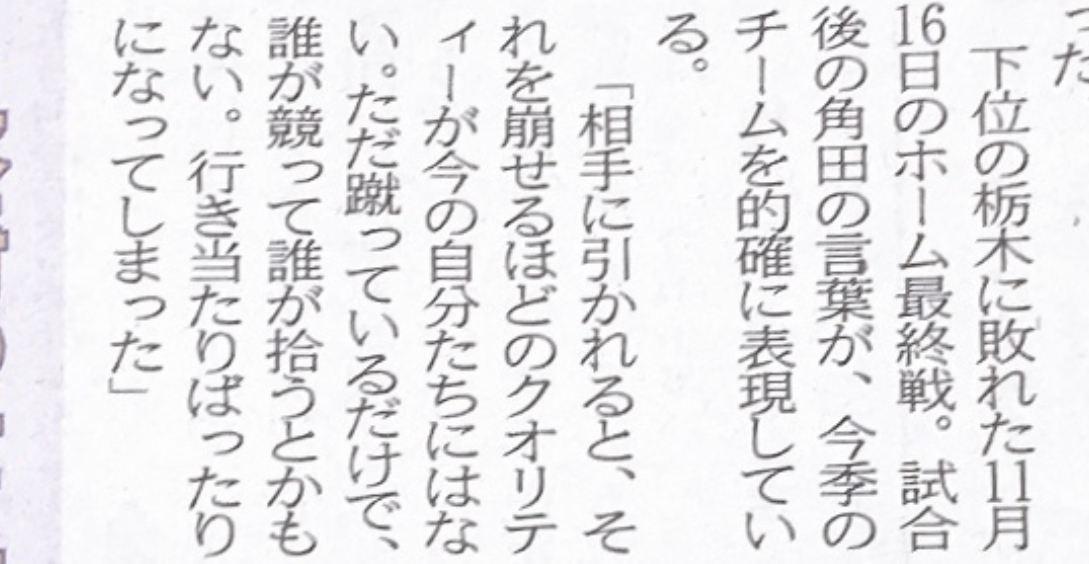 った
下位の栃木に敗れた11月
16日のホーム最終戦。試合
後の角田の言葉が、今季の
チームを的確に表現してい
る。
「相手に引かれると、そ
れを崩せるほどのクオリテ
ィーが今の自分たちにはな
い。ただ蹴っているだけで、
誰が競って誰が拾うとかも
ない。行き当たりばったり
になってしまった」